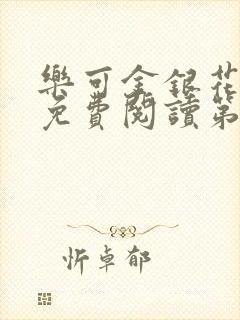 樂可金銀花
免費閱讀第
忻卓郁